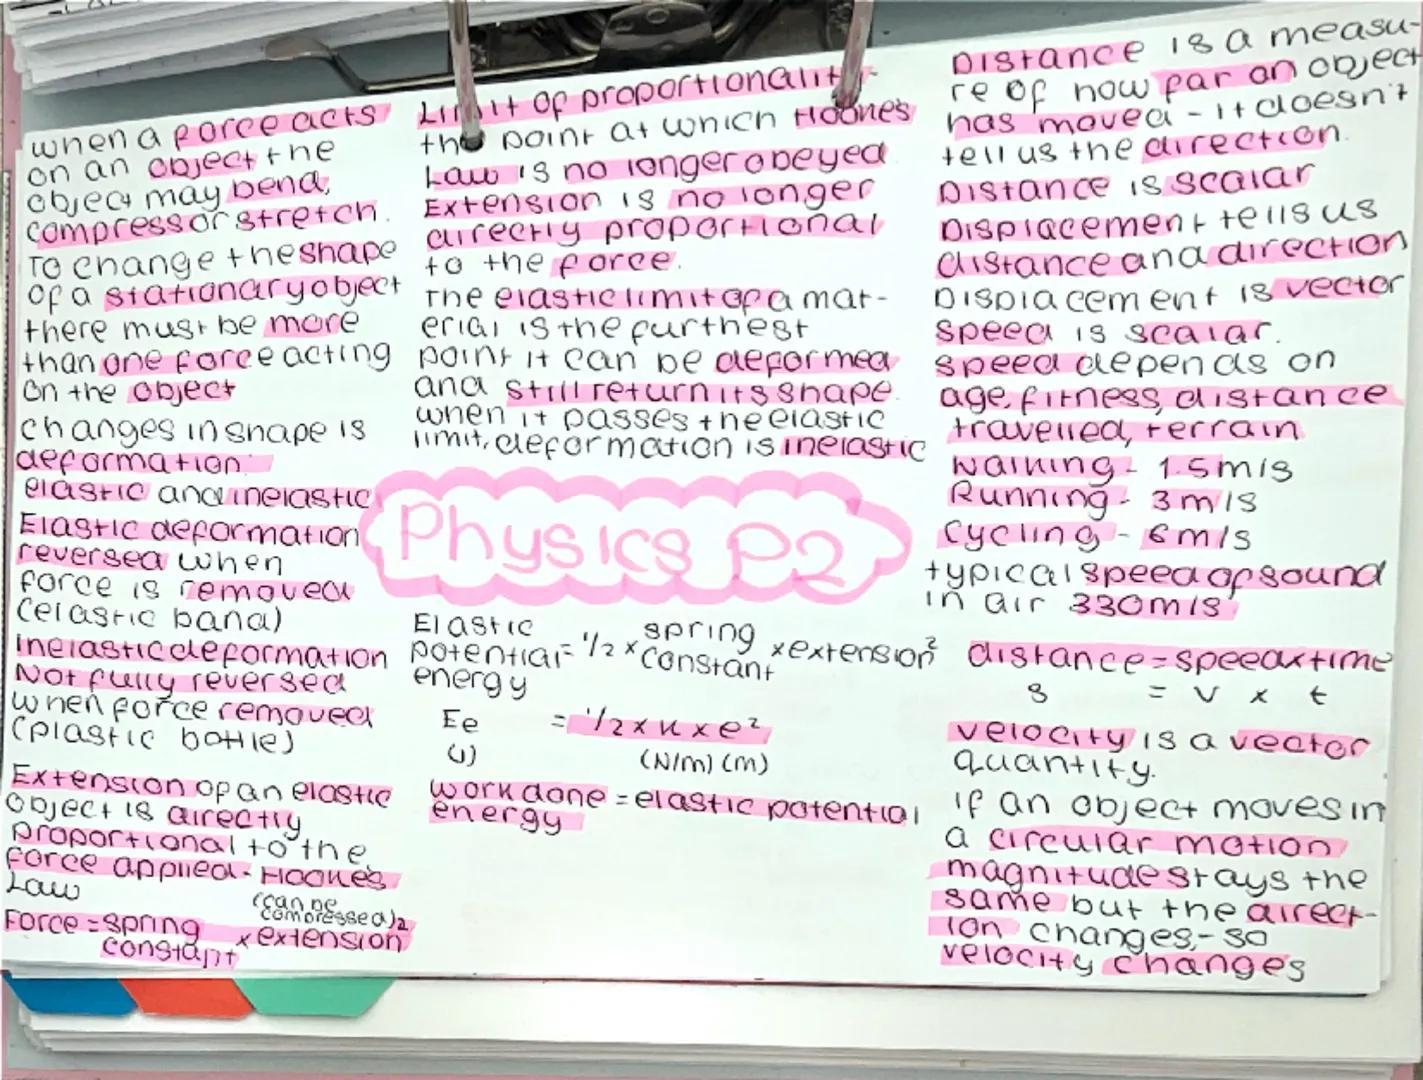 when a force acts
on an object the
object may bend,
compress or stretch.
To change the shape
of a stationary object
there must be more
than one force acting
on the object
changes in shape is
deformation.
elastic and inelastic
Elastic deformation
reversed when
force is removed
(elastic band)
inelastic deformation
Not fully reversed
when force removed
(plastic bottle)
Extension of an elastic
object is directly
proportional to the
force applied - Hooke's
Law
(can be
compressed)2
Force = spring
constant × extension
Limit of proportionality-
the point at which Hooke's
Law is no longer obeyed
Extension is no longer
directly proportional
to the force.
The elastic limit of a mat-
erial is the furthest
point it can be deformed
and still return its shape.
when it passes the elastic
limit, deformation is inelastic
Physics P2
Elastic
potential = 1/2 × spring constant × extension²
energy
Ee = 1/2 × k × e²
(J) (N/m) (m)
work done = elastic potential
energy
Distance is a measu-
re of how far an object
has moved - it doesn't
tell us the direction.
Distance is scalar
Displacement tells us
distance and direction
Displacement is vector
speed is scalar.
speed depends on
age, fitness, distance
travelled, terrain
Walking - 1.5m/s
Running - 3m/s
Cycling - 6m/s
typical speed of sound
in air 330m/s
distance = speed × time
s = v × t
velocity is a vector
quantity.
if an object moves in
a circular motion
magnitude stays the
same but the direct-
ion changes - so
velocity changes